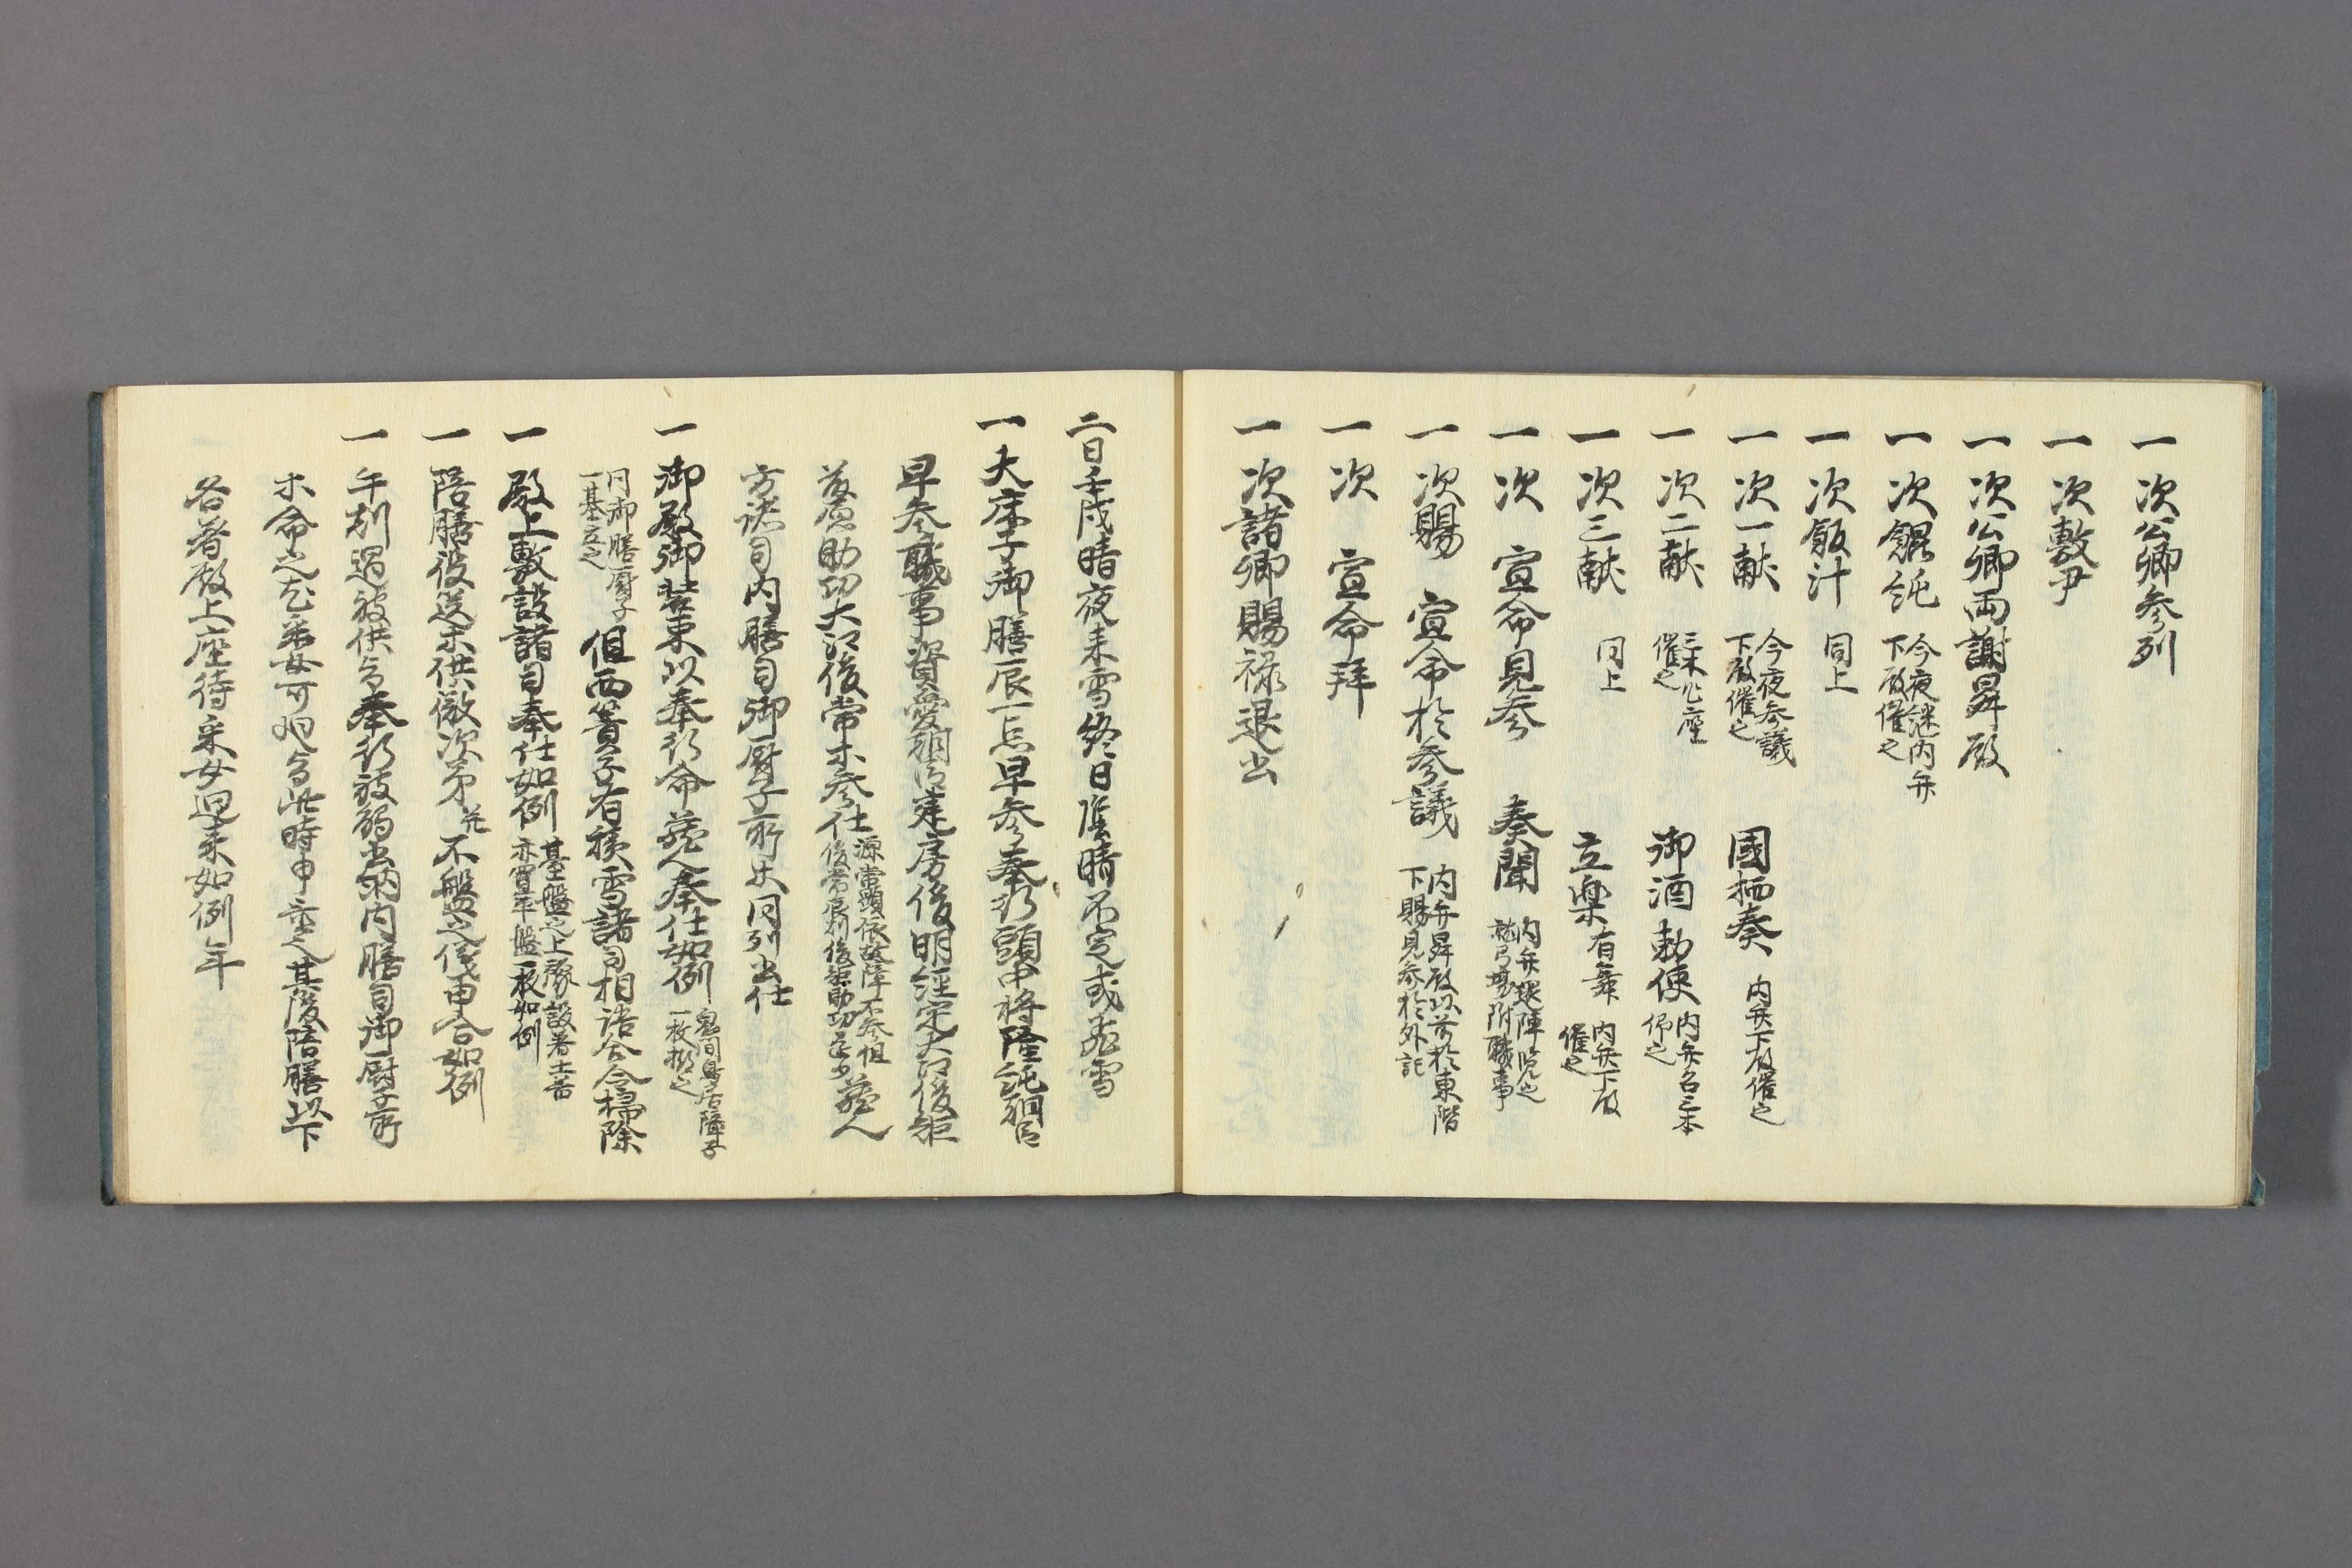 一 次公卿参列
一 次敷尹
一 次公卿両謝昇殿
一 次餛飩 今夜継内弁
下殿催之
一 次飯汁 同上
一 次一献 今夜参議
下殿催之 國栖奏 内弁下殿催之
一 次二献
催之 御酒勅使 内弁召三木
仰之
一 次三献 同上 立楽 有舞 内弁下殿
催之
一 次 宣命見参 奏聞 内弁還陣覧之
就弓場附職事
一 次賜 宣命於参議 内弁昇殿以前於東階
下賜見参於外記
一 次 宣命拝
一 次諸卿賜禄退出
二日壬戌晴夜来雪終日陰晴不定或飛雪
一 大床子御膳辰一点早参奉行頭中将隆純朝臣
早参職事資愛朝臣建房俊明経定大江俊矩
藤原助功大江俊常等参仕 源常顕依故障不参但
蔵人
方諸司内膳司御厨子所等同列出仕
一 御殿御装束以奉行命蔵人奉仕如例 鬼間鳥居障子
一枚撤之
同御膳厨子
一基立之 但西簀子有積雪諸司相語令掃除
一 殿上敷設諸司奉仕如例 基盤之上
亦置平盤一枚如例
一 陪膳役送等供徹次第 不盤之儀申合如例
一 午刻 被供 奉行被 出納内膳司御厨子所
等命之 此時申 其後陪膳以下
各着殿上座待采女迎来如例年